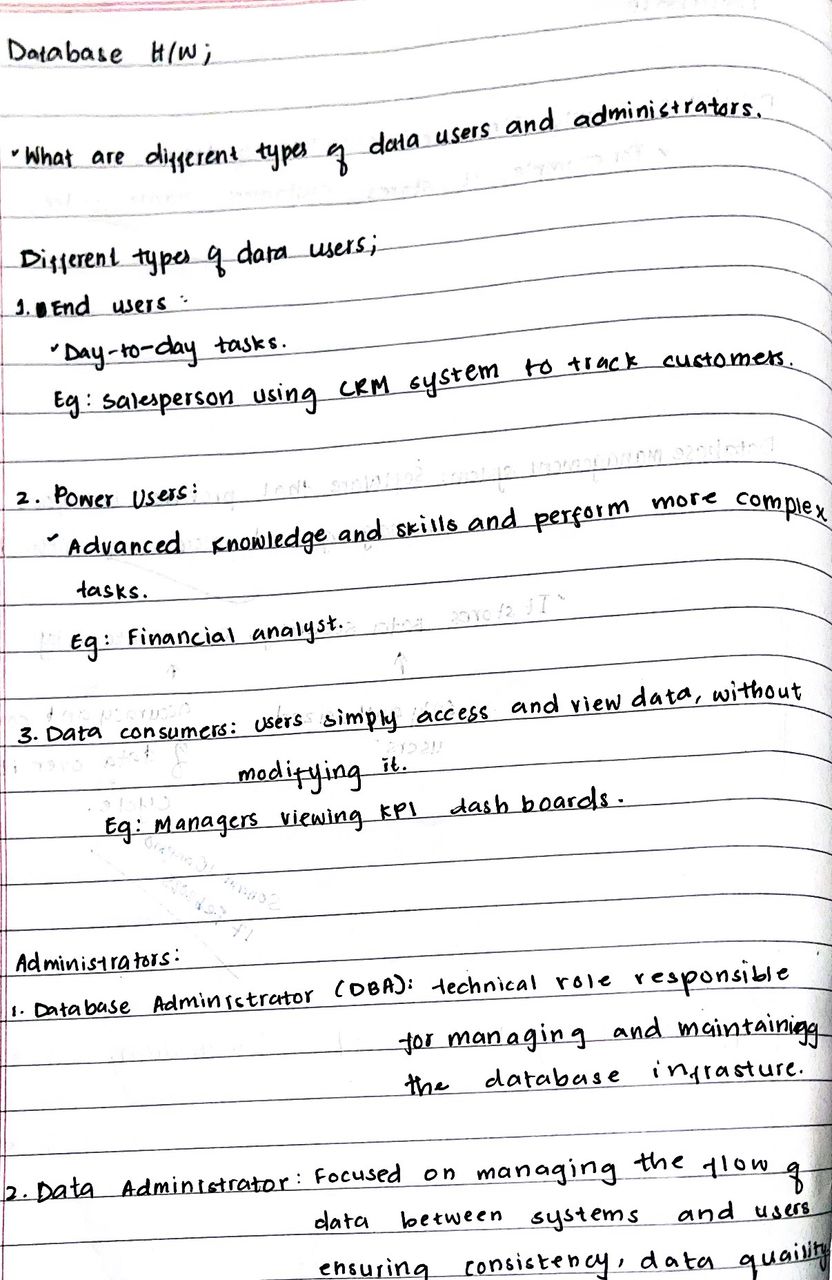 Database H/W;
✓What are different types of data users and administrators.
Different types of data users;
1. End users :
✓Day-to-day tasks.
Eg: salesperson using CRM system to track customers.
2. Power Users:
✓ Advanced knowledge and skills and perform more complex
tasks.
Eg: Financial analyst.
3. Data consumers: users simply access and view data, without
modifying it.
Eg: Managers viewing KPI dash boards.
Administrators:
1. Database Administrator (DBA): technical role responsible
for managing and maintainigg
the database infrasture.
2. Data Administrator: Focused on managing the flow of
data between systems and users
ensuring consistency, data quaility